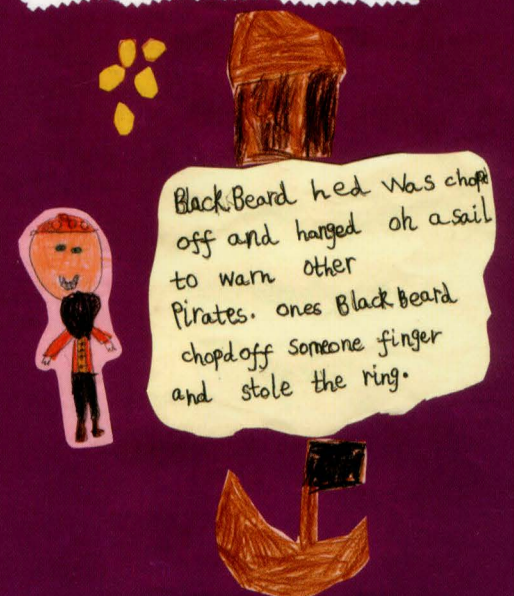 BlackBeard hed was chopd
off and hanged on a sail
to warn other
Pirates. ones Black beard
chopdoff someone finger
and stole the ring.